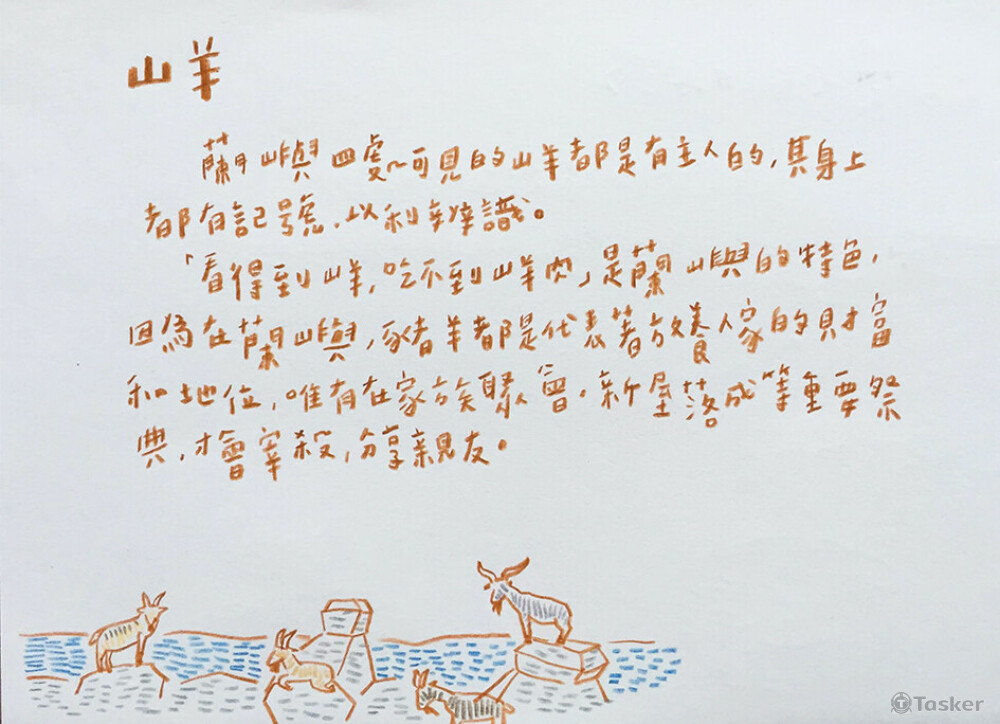 山羊
蘭嶼四處可見的山羊都是有主人的,其身上
都有記號,以利辨識。
「看得到山羊,吃不到山羊肉」是蘭嶼的特色,
因為在蘭嶼,豬羊都是代表著放養人家的財富
和地位,唯有在家族聚會,新屋落成等重要祭
典,才會宰殺,分享親友。
Tasker